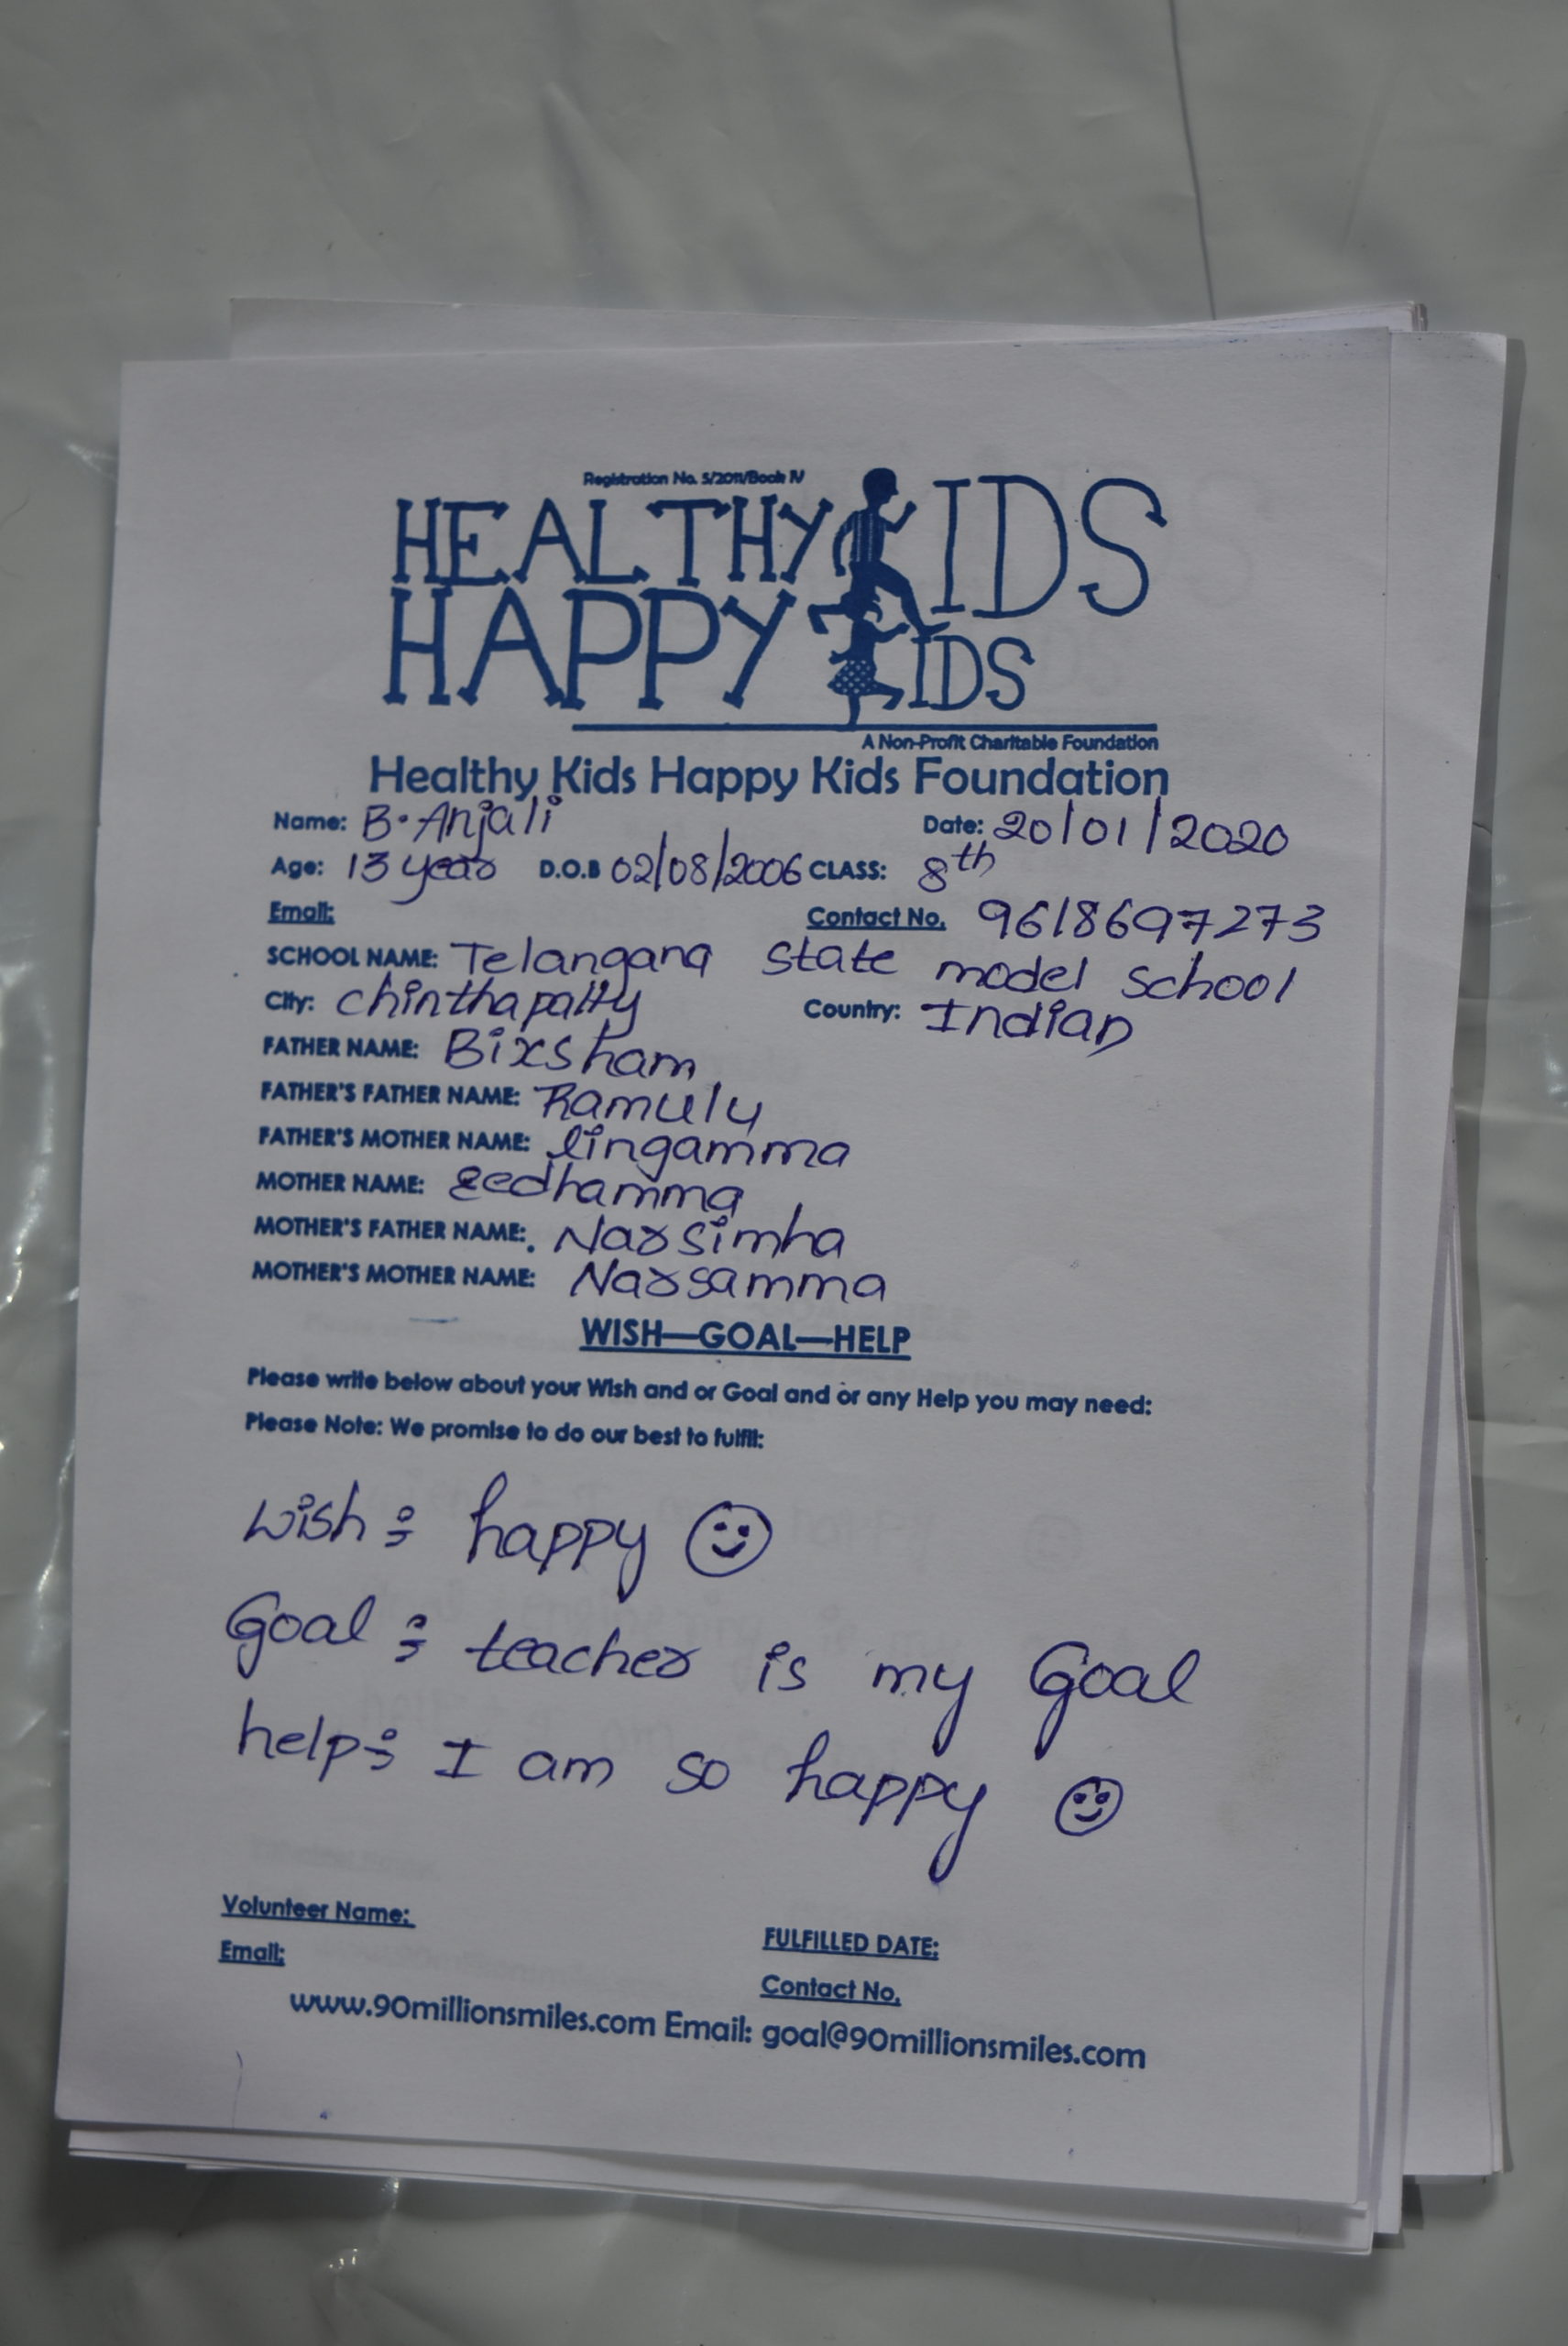 Registration No. 5/2011/Book IV
HEALTHY KIDS
HAPPY KIDS
A Non-Profit Charitable Foundation
Healthy Kids Happy Kids Foundation
Name: B. Anjali Date: 20/01/2020
Age: 13 years D.O.B 02/08/2006 CLASS: 8th
Email: Contact No. 9618697273
SCHOOL NAME: Telangana state model school
City: chinthapally Country: Indian
FATHER NAME: Bixsham
FATHER'S FATHER NAME: Ramulu
FATHER'S MOTHER NAME: lingamma
MOTHER NAME:
MOTHER'S FATHER NAME: Narsimha
MOTHER'S MOTHER NAME: Narsamma
WISH—GOAL—HELP
Please write below about your Wish and or Goal and or any Help you may need:
Please Note: We promise to do our best to fulfil:
wish : happy
Goal : teacher is my Goal
help : I am so happy
Volunteer Name: FULFILLED DATE:
Email: Contact No.
www.90millionsmiles.com Email: goal@90millionsmiles.com